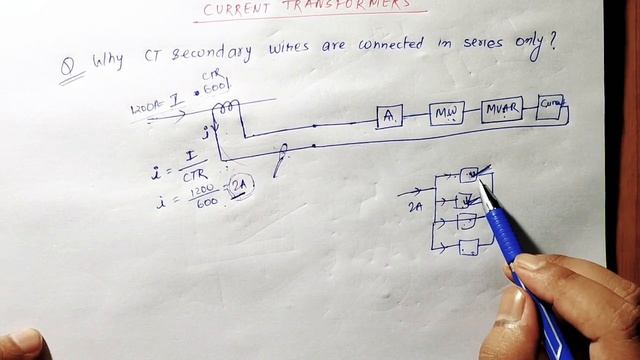 CURRENT TRANSFORMERS
Q Why CT secondary wires are connected in series only?
CTR
1200A = I
600/1
i
A
MW
MVAR
i = I / CTR
i = 1200 / 600 = 2A
2A